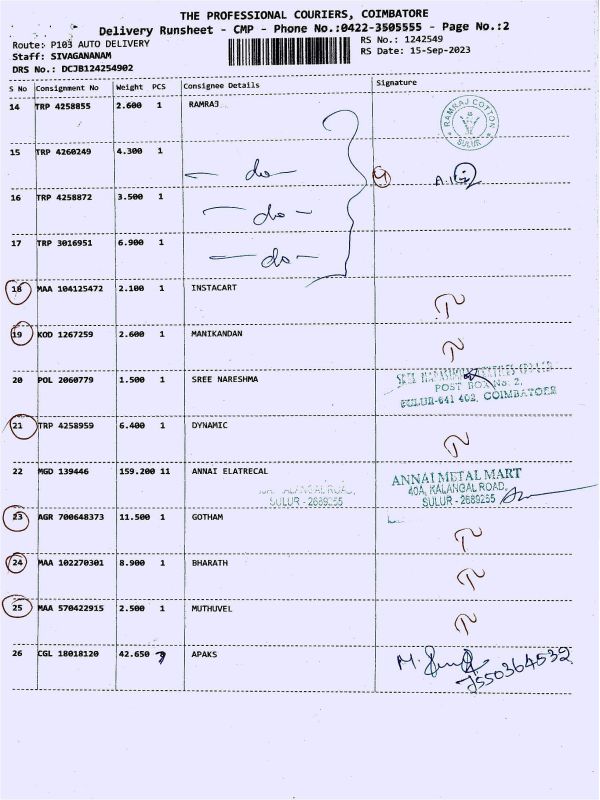 THE PROFESSIONAL COURIERS, COIMBATORE
Delivery Runsheet - CMP - Phone No.:0422-3505555 - Page No.:2
Route: P103 AUTO DELIVERY RS No.: 1242549
Staff: SIVAGANANAM RS Date: 15-Sep-2023
DRS No.: DCJB124254902
S No Consignment No Weight PCS Consignee Details Signature
14 TRP 4258855 2.600 1 RAMRAJ
RAMRAJ COTTON
SULUR
15 TRP 4260249 4.300 1
do
4
16 TRP 4258872 3.500 1
do
17 TRP 3016951 6.900 1
do
18 MAA 104125472 2.100 1 INSTACART
19 KOD 1267259 2.600 1 MANIKANDAN
20 POL 2060779 1.500 1 SREE NARESHMA
POST BOX No: 2,
SULUR-641 402, COIMBATORE
21 TRP 4258959 6.400 1 DYNAMIC
22 MGD 139446 159.200 11 ANNAI ELATRECAL
ANNAI METAL MART
40A, KALANGAL ROAD,
SULUR - 2689255
KALANGAL ROAD,
SULUR - 2689255
23 AGR 700648373 11.500 1 GOTHAM
24 MAA 102270301 8.900 1 BHARATH
25 MAA 570422915 2.500 1 MUTHUVEL
26 CGL 18018120 42.650 APAKS
M.
7550364532